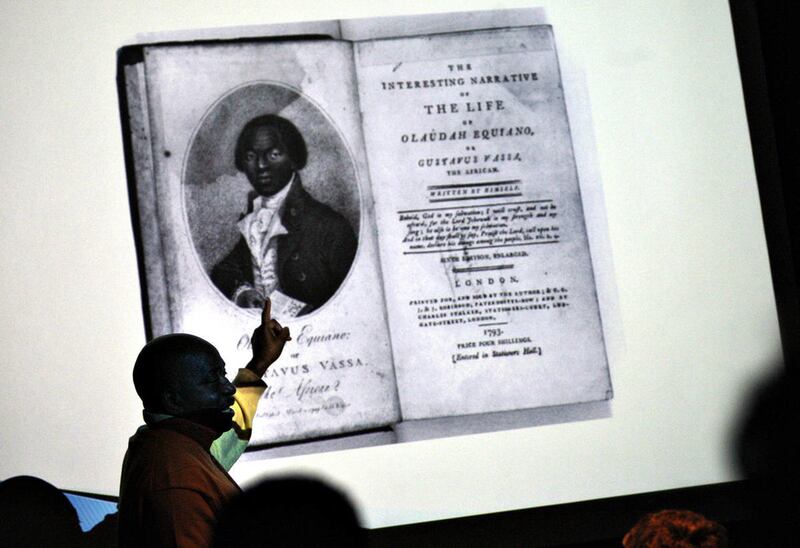 Equiano:
or
GUSTAVUS VASSA,
the African?
THE
INTERESTING NARRATIVE
OF
THE LIFE
OF
OLAUDAH EQUIANO,
OR
GUSTAVUS VASSA,
THE AFRICAN.
WRITTEN BY HIMSELF.
Behold, God is my salvation; I will trust, and not be
afraid, for the Lord Jehovah is my strength and my
song; he also is become my salvation.
And in that day shall ye say, Praise the Lord, call upon his
name, declare his doings among the people, Isa. xii. 2. 4.
SIXTH EDITION, ENLARGED.
LONDON,
PRINTED FOR, AND SOLD BY THE AUTHOR; & G. G.
J. & J. ROBINSON, PATER-NOSTER-ROW; AND BY
CHARLES STALKER, STATIONERS-COURT, LUD-
GATE-STREET, LONDON.
1793.
PRICE FOUR SHILLINGS.
[Entered in Stationers Hall.]